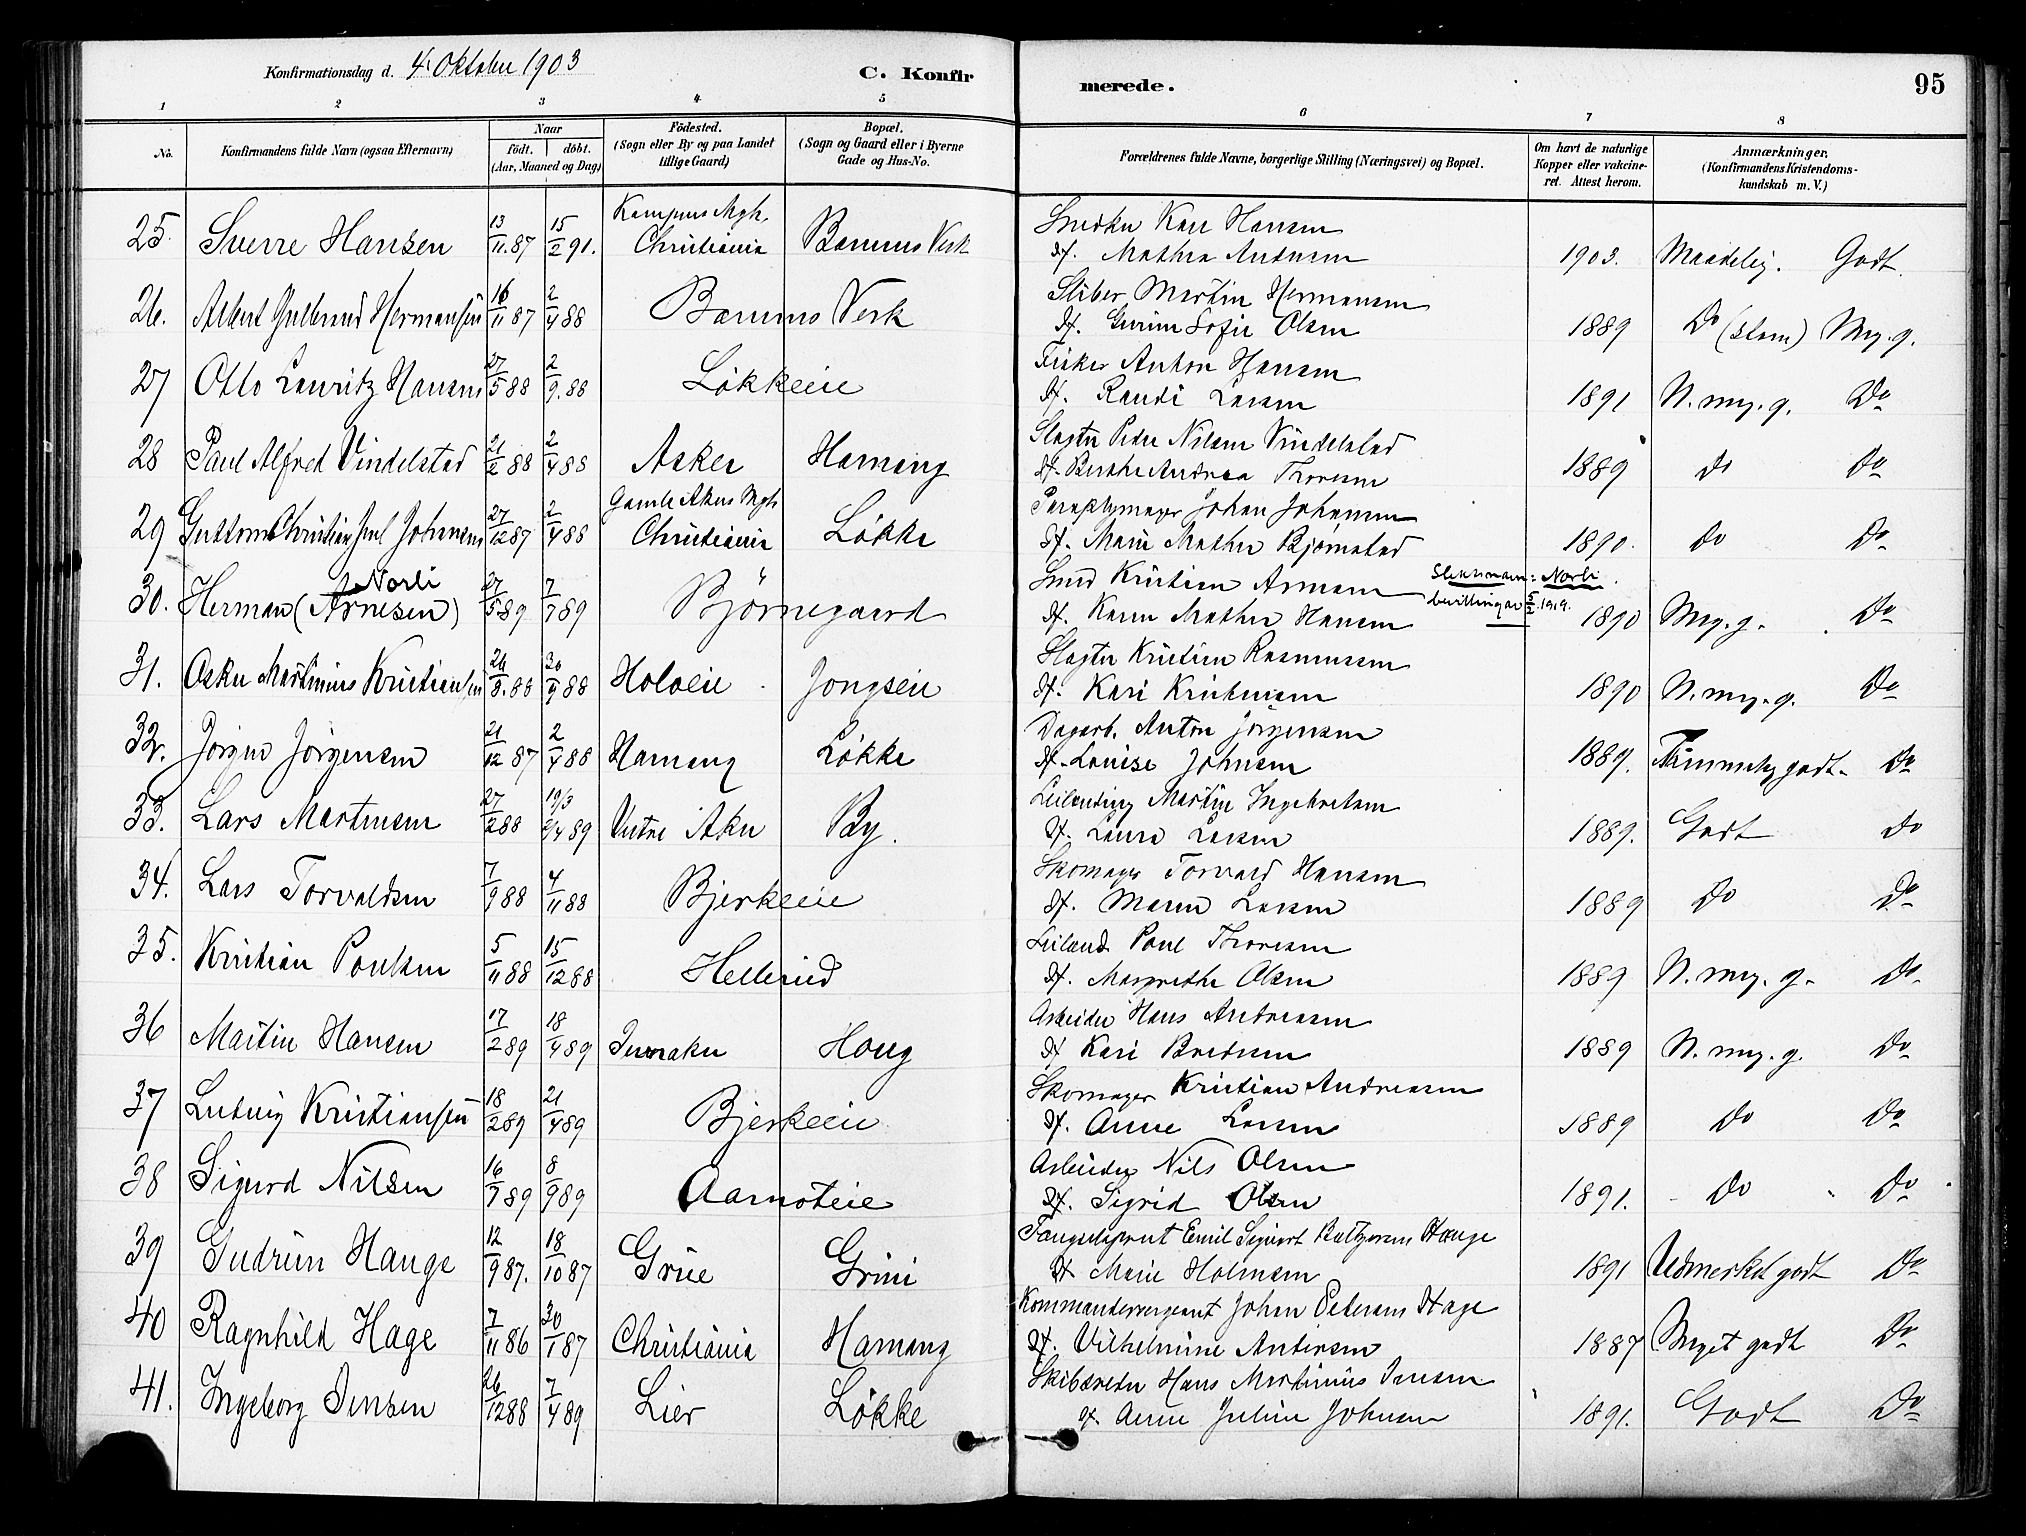 Konfirmationsdag d. 4. Oktober 1903
C. Konfirmerede.
95
1 2 3 4 5 6 7 8
No.
Konfirmandens fulde Navn (ogsaa Efternavn)
Naar
födt. döbt.
(Aar, Maaned og Dag)
Födested.
(Sogn eller By og paa Landet
tillige Gaard)
Bopæl.
(Sogn og Gaard eller i Byerne
Gade og Hus-No.
Forældrenes fulde Navne, borgerlige Stilling (Næringsvei) og Bopæl.
Om havt de naturlige
Kopper eller vakcine-
ret. Attest herom.
Anmærkninger.
(Konfirmandens Kristendoms-
kundskab m. V.)
Kampens Mgh.
25. Sverre Hansen 13/11.87 15/2 91. Christiania Bærums Verk
Snedker Karl Hansen
Hf. Mathea Andersen 1903. Maadelig. Godt.
26. Albert Gulbrand Hermansen 16/11 87 2/4 88 Bærums Verk
Sliber Martin Hermansen
Hf. Gurine Sofie Olsen 1889 Do (stam) Mg. g.
27 Otto Lauritz Hansen 27/5 88 2/9. 88 Løkkeie
Fisker Anton Hansen
Hf. Randi Larsen 1891 N. meg. g. Do
28 Paul Alfred Vindelstad 21/2 88 2/4 88 Asker Hamang
Slagter Peder Nilsen Vindelstad
Hf. Berthe Andrea Thoresen 1889 do Do
Gamle Akers Mgh.
29 Guttorm Christian Juul Johnsen 27/12 87 2/4 88 Christiania Løkke
Paraplymager Johan Johansen
Hf. Marie Mathea Bjørnstad 1890. Do Do
Norli
30. Herman (Arnesen) 27/5 89 7/7 89 Bjørnegaard
Smed Kristian Arnesen
Slektsnavn: Norli
bevilling av 5/2 1919.
Hf. Karen Mathea Hansen 1890 Meg. g. Do
31. Oskar Martinius Kristiansen 26/8. 88 30/9 88 Holoeie Jongseie
Slagter Kristian Rasmussen
Hf. Kari Kristiansen 1890 N. meg. g. Do
32. Jørgen Jørgensen 21/12 87 2/4 88 Hamang Løkke
Dagarb. Anton Jørgensen
Hf. Louise Johnsen 1889. Temmelig godt. Do
33. Lars Martinsen 27/2 88 19/3 2/4 89 Vestre Aker By.
Leilending Martin Ingebretsen
Hf. Laura Larsen 1889. Godt Do
34. Lars Torvaldsen 7/9 88 4/11 88 Bjerkeeie
Skomager Torvald Hansen
Hf. Maren Larsen 1889 Do Do
35. Kristian Poulsen 5/11 88 15/12 88 Hellerud
Leilend. Poul Thoresen
Hf. Margrethe Olsen 1889 N. meg. g. Do
36 Martin Hansen 17/2 89 18/4 89 Haug
Arbeider Hans Andreasen
Hf Kari Bredesen 1889 N. meg. g. Do
37 Ludvig Kristiansen 18/2 89 21/4 89 Bjerkeeie
Skomager Kristian Andreasen
Hf. Anne Larsen 1889 Do Do
38 Sigurd Nilsen 16/7 89 8/9 89 Aamoteie
Arbeider Nils Olsen
Hf. Sigrid Olsen 1891. Do Do
39 Gudrun Hauge 12/9 87. 18/10 87 Grue Grini
Fængselsbetjent Emil Sigvart Baltzersen Hauge
Hf Marie Holmsen 1891 Udmerket godt Do
40 Ragnhild Hage 7/11 86 30/1 87 Christiania Hamang
Kommandersergeant Johan Petersen Hage
Hf. Vilhelmine Andersen 1887 Meget godt Do
41. Ingeborg Jensen 26/12 88 7/4 89 Lier Løkke
Skibsreder Hans Martinius Jensen
Hf. Anne Juline Johnsen 1891. Godt Do